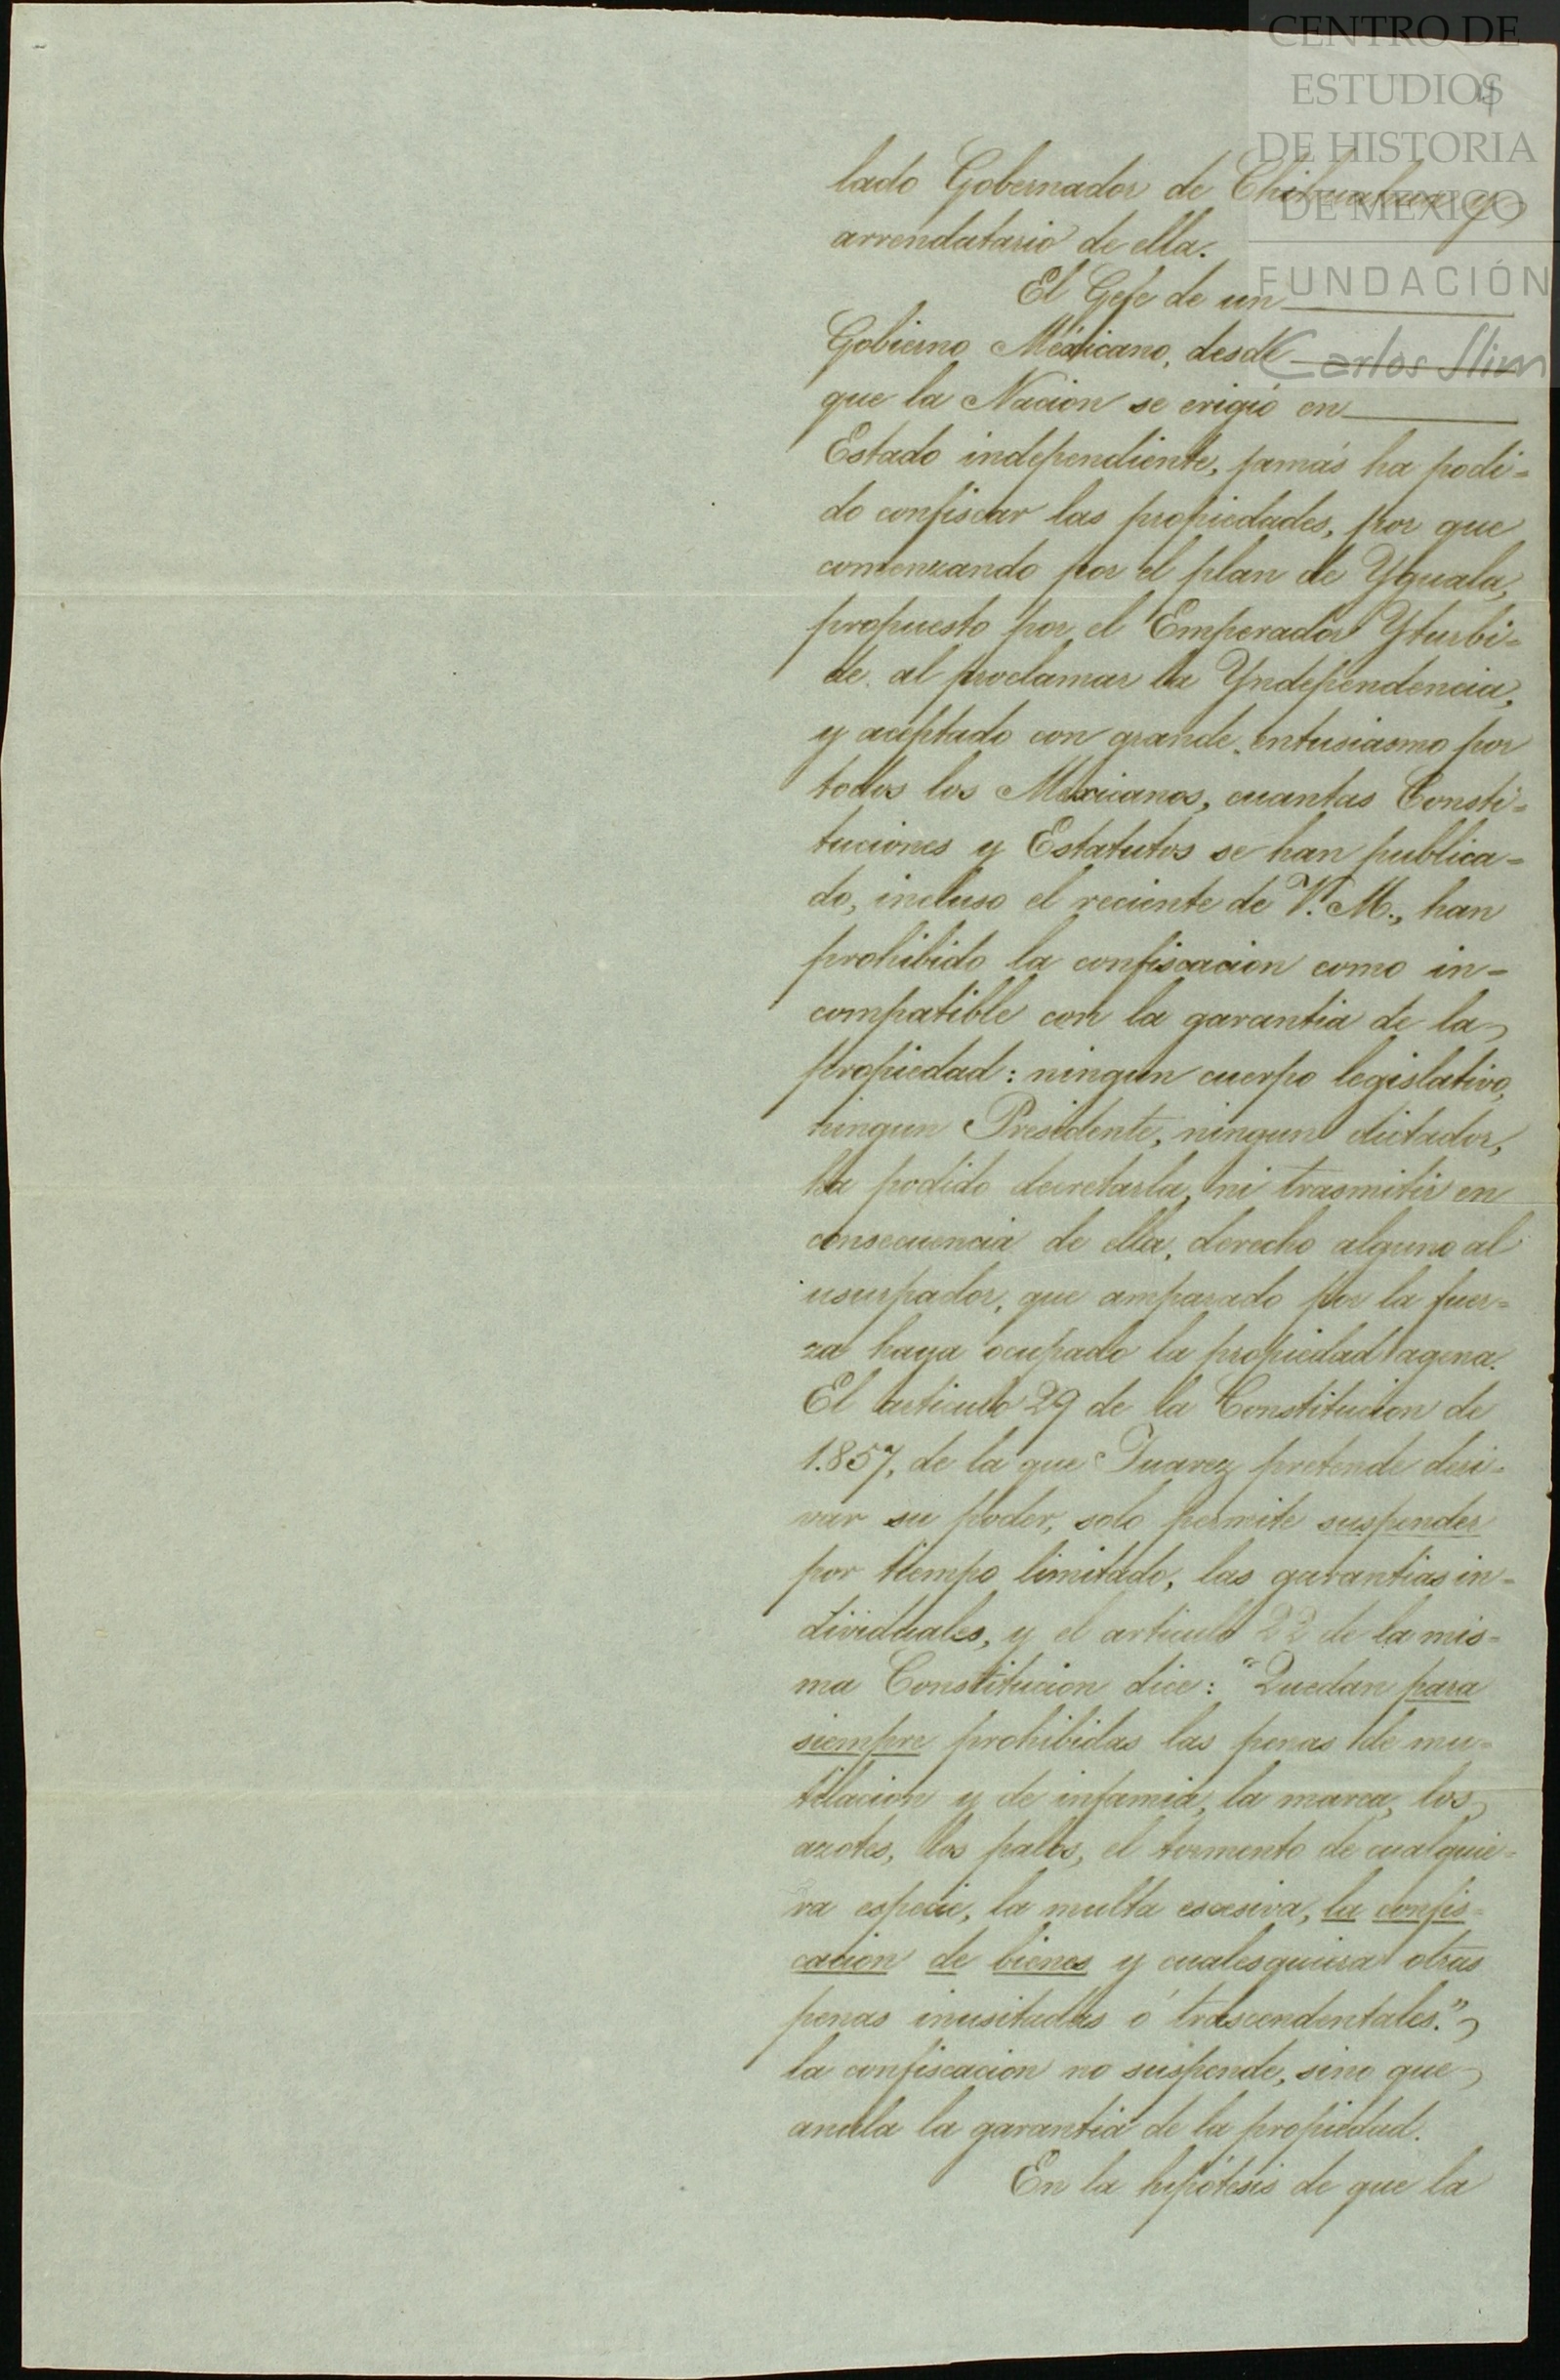 CENTRO DE
ESTUDIOS
DE HISTORIA
DE MEXICO
FUNDACIÓN
Carlos Slim
lado Gobernador de Chihuahua y
arrendatario de ella.
El Gefe de un
Gobierno Méxicano, desde
que la Nacion se erigió en
Estado independiente, jamás ha podi=
do confiscar las propiedades, por que
comenzando por el plan de Yguala,
propuesto por el Emperador Yturbi=
de al proclamar la Yndependencia,
y aceptado con grande entusiasmo por
todos los Mexicanos, cuantas Consti=
tuciones y Estatutos se han publica=
do, incluso el reciente de V. M., han
prohibido la confiscacion como in=
compatible con la garantia de la
propiedad: ningun cuerpo legislativo,
ningun Presidente, ningun dictador,
ha podido decretarla, ni trasmitir en
consecuencia de ella, derecho alguno al
usurpador, que amparado por la fuer=
za haya ocupado la propiedad agena.
El articulo 29 de la Constitucion de
1.857, de la que Juarez pretende deri=
var su poder, solo permite suspender
por tiempo limitado, las garantias in=
dividuales, y el articulo 22 de la mis=
ma Constitucion dice: "Quedan para
siempre prohibidas las penas de mu=
tilacion y de infamia, la marca, los
azotes, los palos, el tormento de cualquie=
ra especie, la multa escesiva, la confis=
cacion de bienes y cualesquiera otras
penas inusitadas ó trascendentales."
la confiscacion no suspende, sino que
anula la garantia de la propiedad.
En la hipótesis de que la